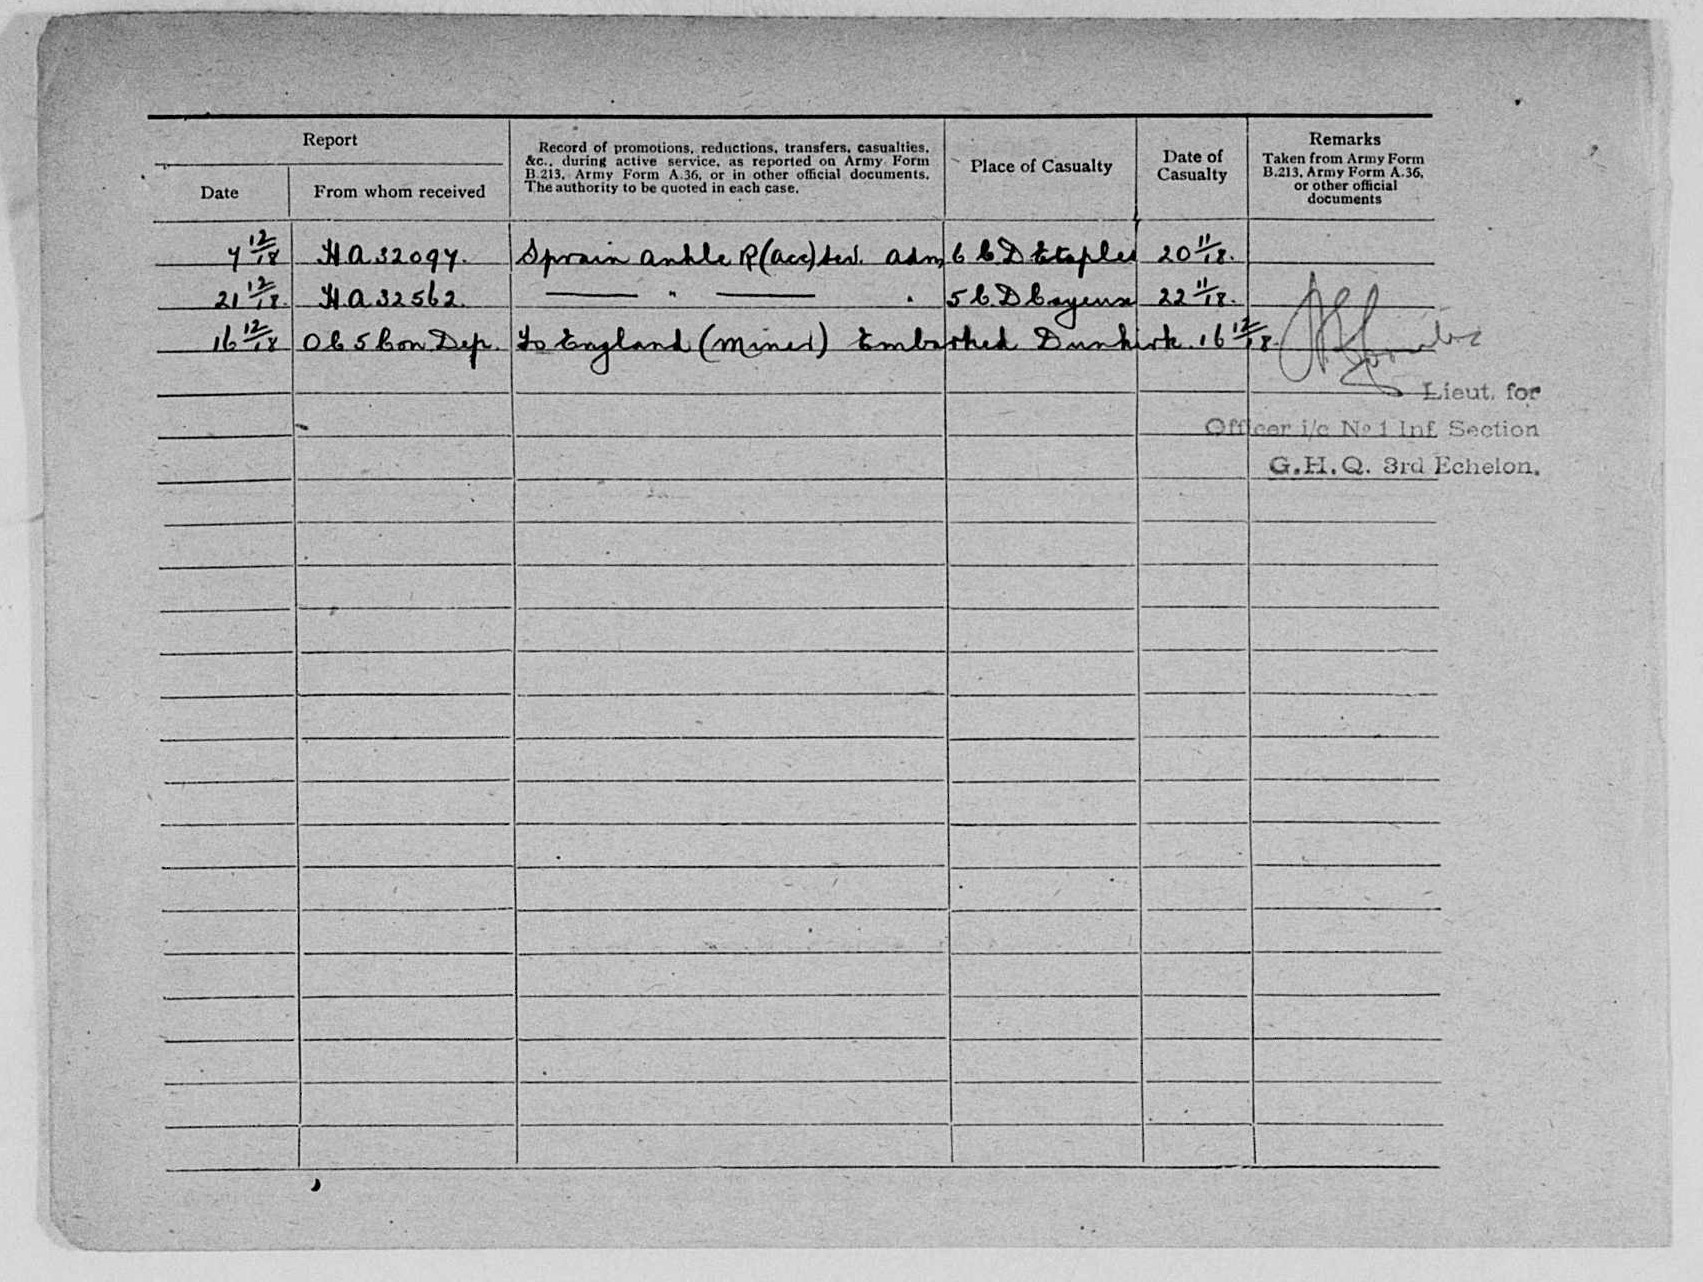 Report
Date
From whom received
Record of promotions, reductions, transfers, casualties,
&c., during active service, as reported on Army Form
B.213, Army Form A.36, or in other official documents.
The authority to be quoted in each case.
Place of Casualty
Date of
Casualty
Remarks
Taken from Army Form
B.213, Army Form A.36,
or other official
documents
7 12/18 HA 32097. Sprain ankle R (acc) adm 6 C.D Etaples 20 11/18.
21 12/18. HA 32562. — " — " 5 C.D Cayeux 22 11/18.
16 12/18 OC 5 Con Dep. To England (Miner) Embarked Dunkirk. 16 12/18.
Lieut. for
Officer i/c No 1 Inf. Section
G.H.Q. 3rd Echelon.